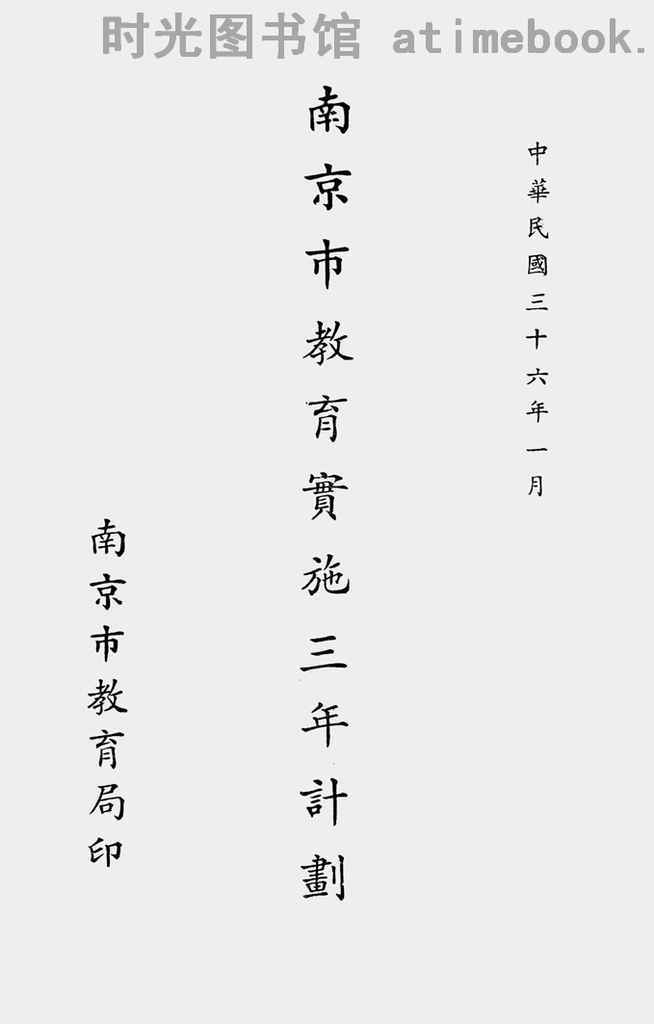 时光图书馆 atimebook.
中華民國三十六年一月
南京市教育實施三年計劃
南京市教育局印